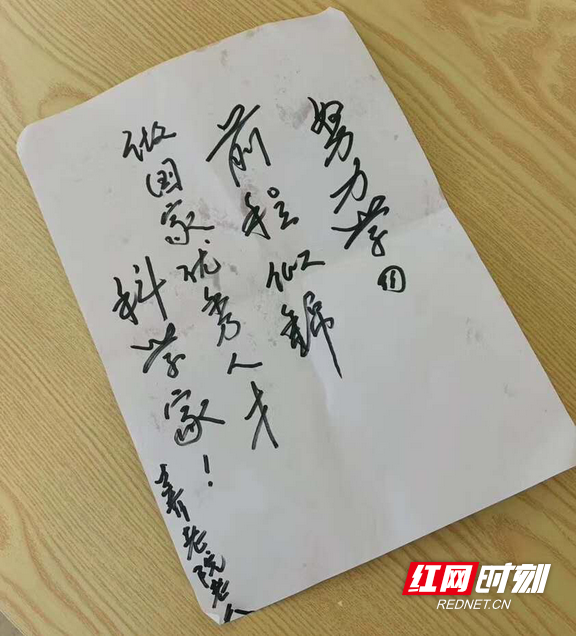 努力学习
前程似锦
做国家优秀人才
科学家！
养老院老人
红网时刻
REDNET.CN